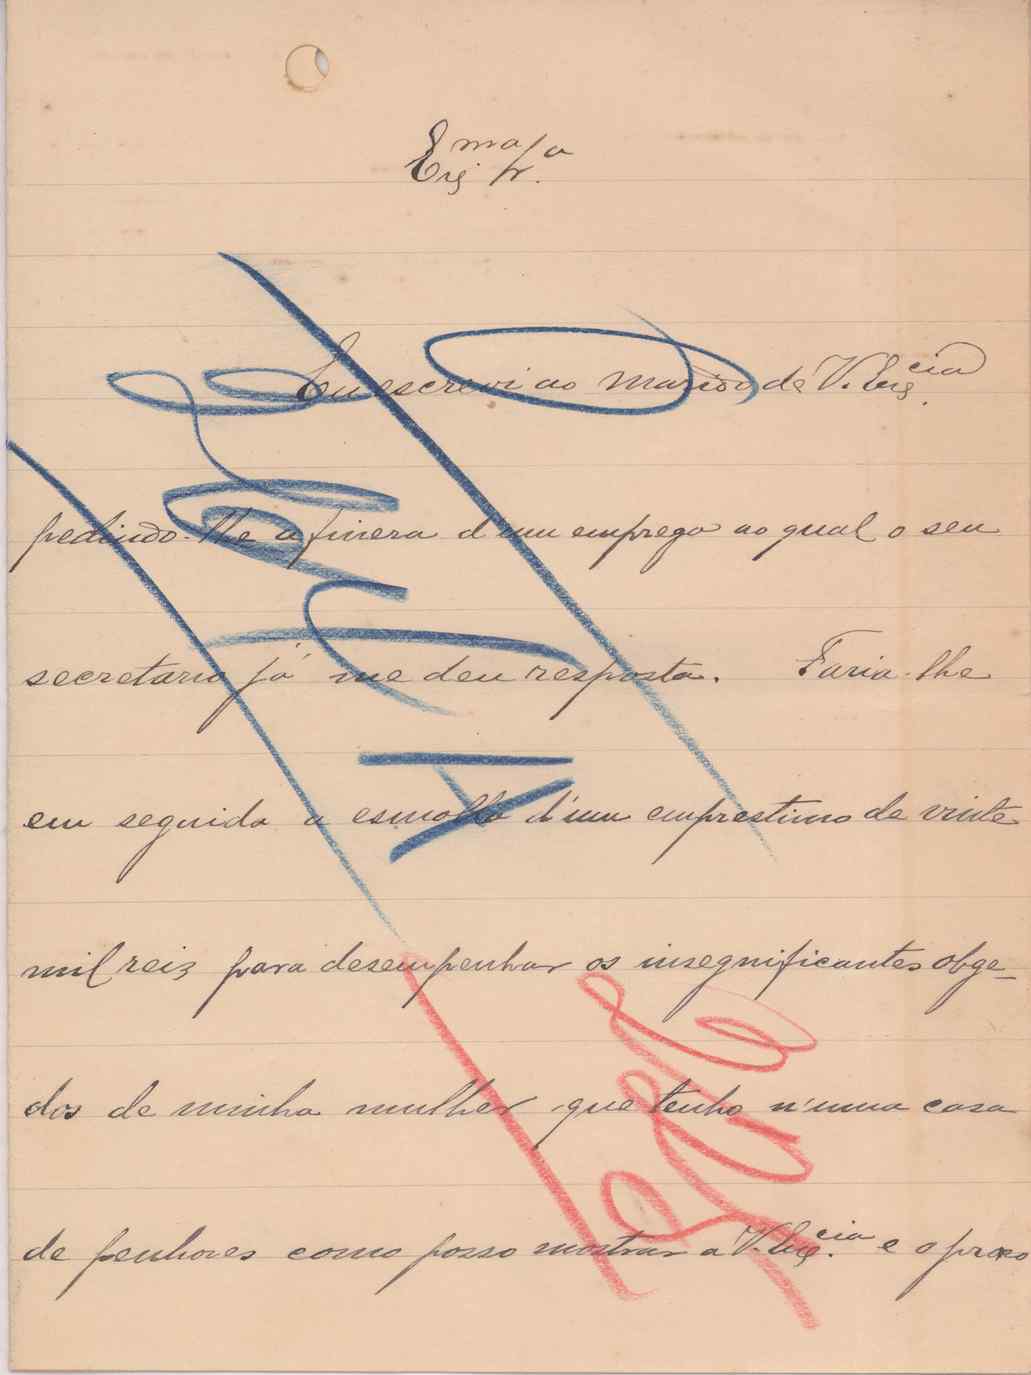 Ex.ma Sr.a
Eu escrevi ao marido de V. Ex.cia
pedindo-lhe a finera d'um emprego ao qual o seu
secretario já me deu resposta. Faria-lhe
em seguida a esmolla d'um emprestimo de vinte
mil reis para desempenhar os insegnificantes obge-
dos de minha mulher que tenho n'uma casa
de penhores como posso mostrar a V. Ex.cia e o praso